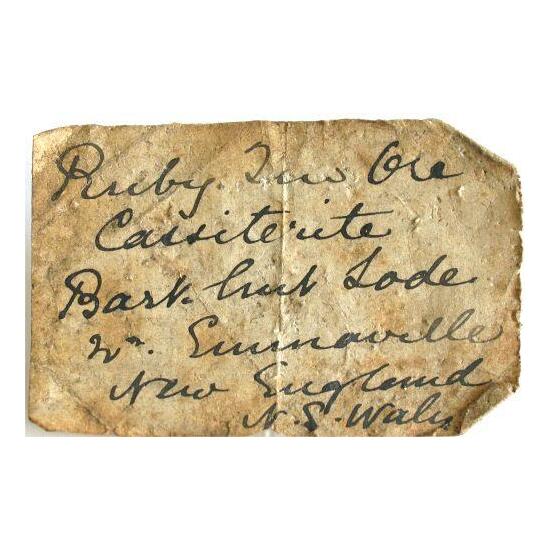 Ruby Tin Ore
Cassiterite
Bark hut Lode
Nr. Emmaville
New England
N. S. Wales